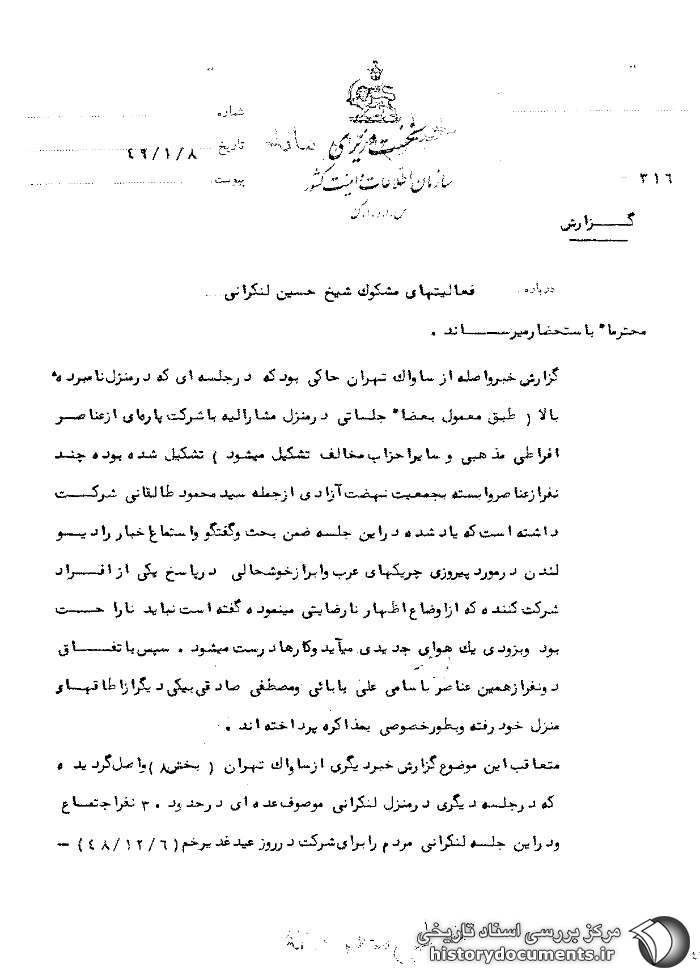 شماره
نخست وزیری
تاریخ ۴۹/۱/۸
سازمان اطلاعات و امنیت کشور
پیوست
۳۱۶
س.ا.و.ا.ک
گــــزارش
درباره فعالیتهای مشکوك شیخ حسین لنکرانی
محترما" باستحضار میرســـاند .
گزارش خبر واصله از ساواك تهران حاکی بود که در جلسه ای که در منزل نامبرده
بالا ( طبق معمول بعضا" جلساتی در منزل مشارالیه با شرکت پاره‌ای از عناصر
افراطی مذهبی و سایر احزاب مخالف تشکیل میشود ) تشکیل شده بوده چند
نفر از عناصر وابسته بجمعیت نهضت آزادی از جمله سید محمود طالقانی شرکت
داشته است که یاد شده در این جلسه ضمن بحث و گفتگو و استماع اخبار رادیــو
لندن در مورد پیروزی چریکهای عرب و ابراز خوشحالی در پاسخ یکی از افــراد
شرکت کننده که از اوضاع اظهار نارضایتی مینموده گفته است نباید نارا حــت
بود وبزودی یك هوای جدیدی میآید وکارها درست میشود . سپس باتفــاق
دونفر از همین عناصر باسامی علی بابائی ومصطفی صادقی بیکی دیگر از اطاقهــای
منزل خود رفته وبطور خصوصی بمذاکره پرداخته اند .
متعاقب این موضوع گزارش خبر دیگری از ساواك تهران ( بخش ۸ ) واصل گردیده
که در جلسه دیگری در منزل لنکرانی موصوف عده ای در حدود ۳۰ نفر اجتمــاع
ودراین جلسه لنکرانی مردم را برای شرکت در روز عید غدیر خم ( ۴۸/۱۲/۶ ) –
مرکز بررسی اسناد تاریخی
historydocuments.ir